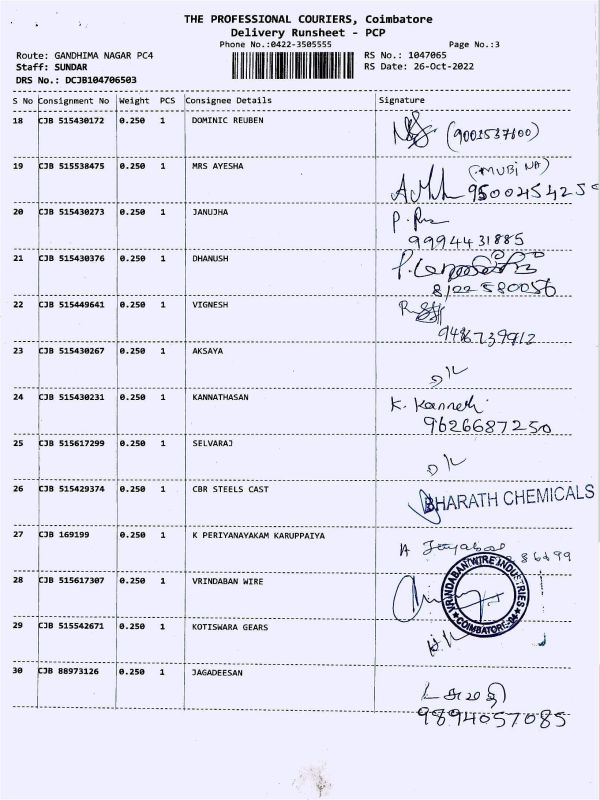 THE PROFESSIONAL COURIERS, Coimbatore
Delivery Runsheet - PCP
Phone No.:0422-3505555 Page No.:3
Route: GANDHIMA NAGAR PC4 RS No.: 1047065
Staff: SUNDAR RS Date: 26-Oct-2022
DRS No.: DCJB104706503
S No Consignment No Weight PCS Consignee Details Signature
18 CJB 515430172 0.250 1 DOMINIC REUBEN
19 CJB 515538475 0.250 1 MRS AYESHA (MUBINA)
20 CJB 515430273 0.250 1 JANUJHA
9994431885
21 CJB 515430376 0.250 1 DHANUSH
8122580056
22 CJB 515449641 0.250 1 VIGNESH
23 CJB 515430267 0.250 1 AKSAYA
24 CJB 515430231 0.250 1 KANNATHASAN K.
9626687250
25 CJB 515617299 0.250 1 SELVARAJ
26 CJB 515429374 0.250 1 CBR STEELS CAST BHARATH CHEMICALS
27 CJB 169199 0.250 1 K PERIYANAYAKAM KARUPPAIYA
28 CJB 515617307 0.250 1 VRINDABAN WIRE VRINDABAN WIRE INDUSTRIES
COIMBATORE-04
29 CJB 515542671 0.250 1 KOTISWARA GEARS
30 CJB 88973126 0.250 1 JAGADEESAN
9894057085